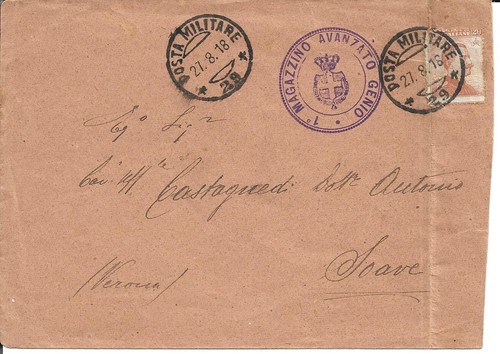 POSTA MILITARE
27.8.18
* 29 *
1° MAGAZZINO AVANZATO GENIO *
POSTA MILITARE
27.8.18
* 29 *
Eg° Sig.r
Cav. Uff.
Dott. Antonio
Soave
(Verona)